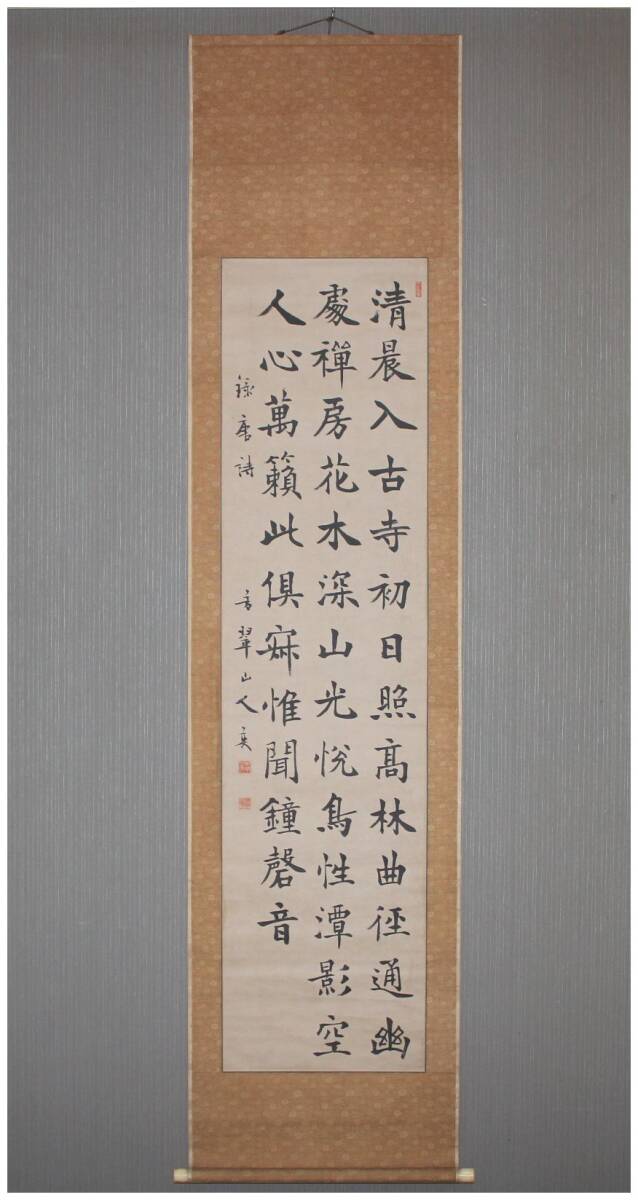 清晨入古寺初日照高林曲徑通幽
處禪房花木深山光悅鳥性潭影空
人心萬籟此俱寂惟聞鐘磬音
錄唐詩
翠山人